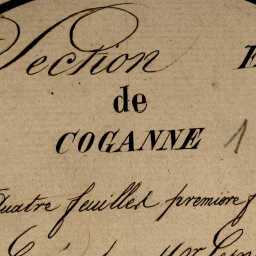 Section E
de
COGANNE 1
Quatre feuilles première f